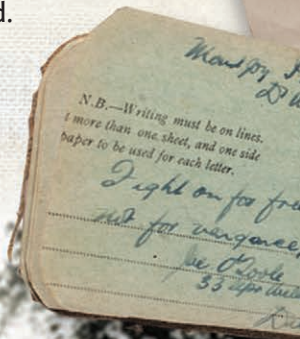 d.
Mountjoy
N.B.—Writing must be on lines.
t more than one sheet, and one side
paper to be used for each letter.
Fight on for
not for vengance,
Joe O'Toole
33